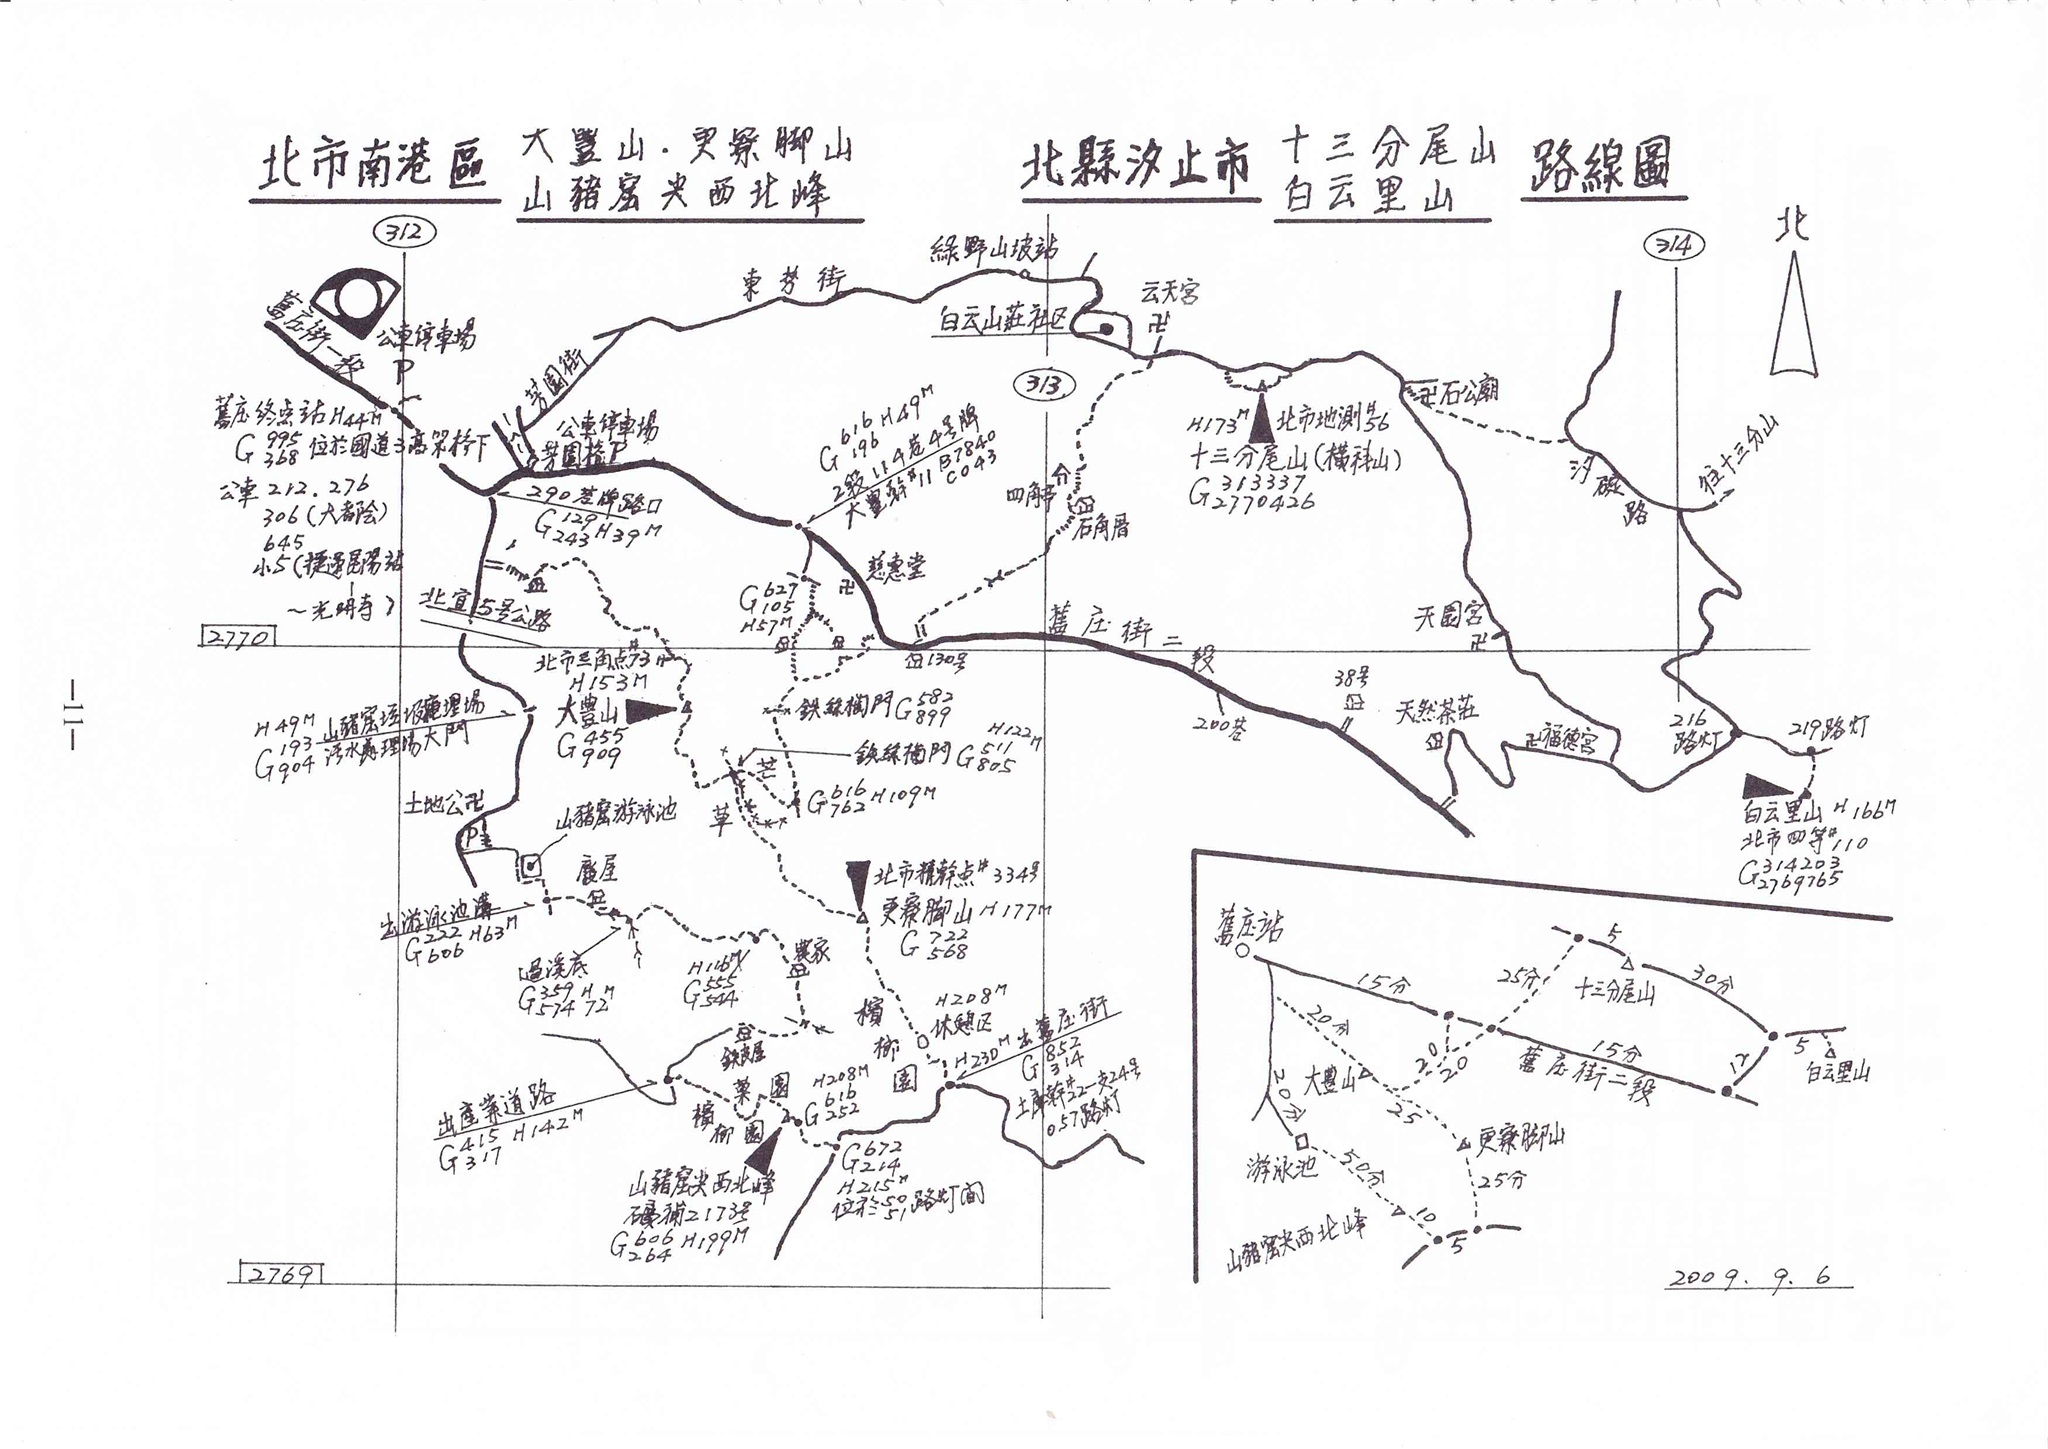 北市南港區
大豐山.更寮腳山
山豬窟尖西北峰
北縣汐止市
十三分尾山
白云里山
路線圖
312
313
314
北
舊庄街一段
公車停車場
P
芳園街
東勢街
綠野山坡站
白云山莊社区
云天宮
卍
舊庄終点站H44M
G 995
368
位於國道3高架桥下
公車212.276
306(大都会)
645
小5(捷運昆陽站
~光明寺)
公車停車場
芳園橋P
290巷伸路口
G 129
243
H39M
G 616
196
H49M
2段114巷4号牌
大豐幹#11 B7840
C043
四角亭
石角厝
H173M
北市地測#56
十三分尾山(橫科山)
G 313337
2770426
卍石公廟
汐碇路
往十三分山
北宜5号公路
2770
北市三角点#73
H153M
大豐山
G 455
909
G 627
105
H57M
慈惠堂
卍
130号
舊庄街二段
200巷
38号
天然茶莊
天園宮
卍
卍福德宮
216
路灯
219路灯
白云里山H166M
北市四等#110
G 314203
2769765
H49M
G 193
904
山豬窟垃圾掩埋場
污水處理場大門
鉄絲橺門G 582
899
鉄絲橺門G 511
805
H122M
G 616
762
H109M
芒
草
土地公卍
P
山豬窟游泳池
廢屋
出游泳池溝
G 222
606
H63M
過溪底
G 359
574
H
72M
H116M
G 555
544
農家
北市精幹点#334号
更寮腳山H177M
G 722
568
檳
榔
園
H208M
休憩区
H230M出舊庄街
G 852
314
土庫幹#22一支24号
057路灯
鉄皮屋
菓園
檳榔園
出產業道路
G 415
317
H142M
H208M
G 616
252
山豬窟尖西北峰
礦補2173号
G 606
264
H199M
G 672
214
H215M
位於50
51路灯间
2769
舊庄站
15分
25分
5
十三分尾山
30分
20分
20
20
15分
舊庄街二段
12
5
白云里山
大豐山
25
20分
更寮腳山
游泳池
50分
25分
山豬窟尖西北峰
10
5
2009.9.6
—11—